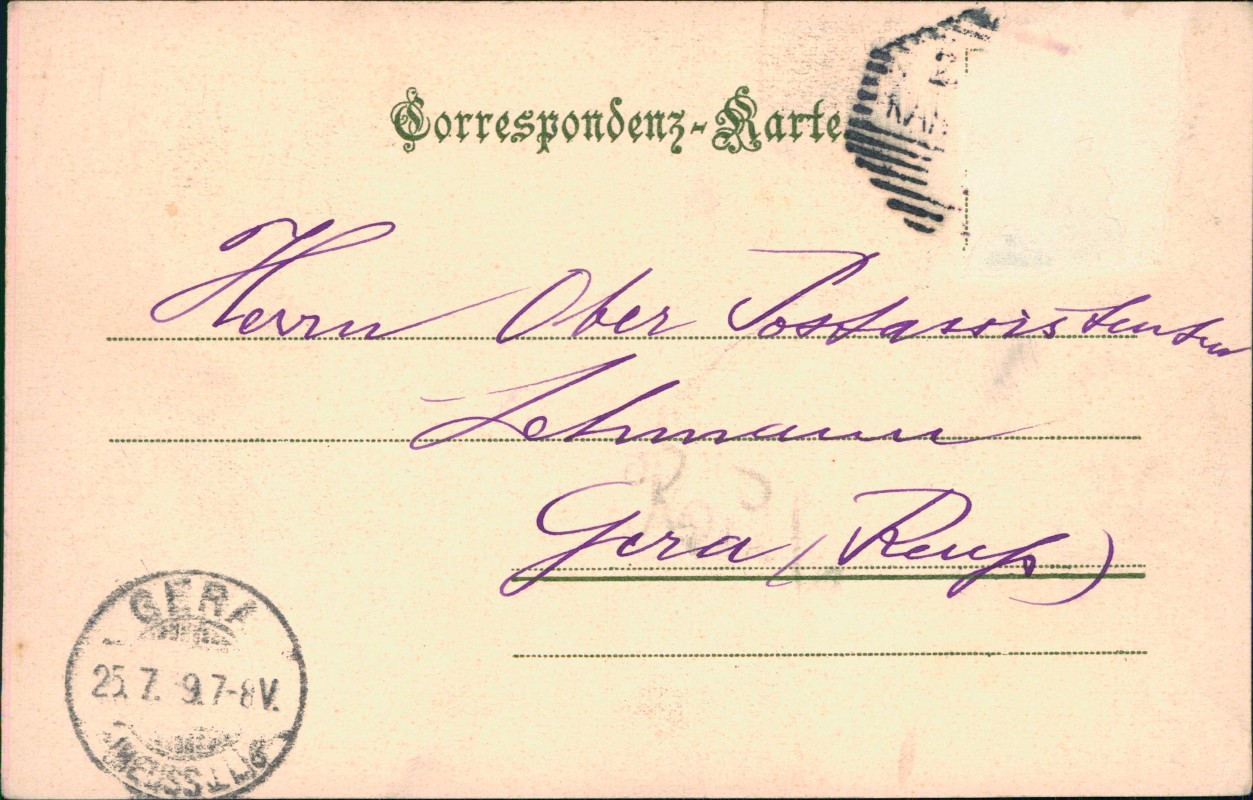 Correspondenz-Karte
KAR
Herrn Ober Postassistenten
Lehmann
Gera (Reuß)
GERA
25.7. 9.7-8V.
(REUSS J.L.)